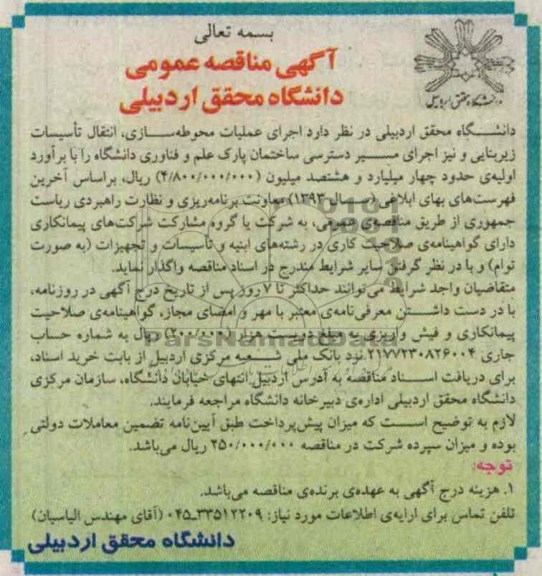 بسمه تعالی
آگهی مناقصه عمومی
دانشگاه محقق اردبیلی
دانشگاه محقق اردبیلی
دانشگاه محقق اردبیلی در نظر دارد اجرای عملیات محوطه‌سازی، انتقال تأسیسات
زیربنایی و نیز اجرای مسیر دسترسی ساختمان پارک علم و فناوری دانشگاه را با برآورد
اولیه‌ی حدود چهار میلیارد و هشتصد میلیون (۴/۸۰۰/۰۰۰/۰۰۰) ریال، براساس آخرین
فهرست‌های بهای ابلاغی (سال ۱۳۹۳) معاونت برنامه‌ریزی و نظارت راهبردی ریاست
جمهوری از طریق مناقصه‌ی عمومی، به شرکت یا گروه مشارکت شرکت‌های پیمانکاری
دارای گواهینامه‌ی صلاحیت کاری در رشته‌های ابنیه و تأسیسات و تجهیزات (به صورت
توام) و با در نظر گرفتن سایر شرایط مندرج در اسناد مناقصه واگذار نماید.
متقاضیان واجد شرایط می‌توانند حداکثر تا ۷ روز پس از تاریخ درج آگهی در روزنامه،
با در دست داشتن معرفی‌نامه‌ی معتبر با مهر و امضای مجاز، گواهینامه‌ی صلاحیت
پیمانکاری و فیش واریزی به مبلغ دویست هزار (۲۰۰/۰۰۰) ریال به شماره حساب
جاری ۲۱۷۷۲۳۰۸۲۶۰۰۴ نزد بانک ملی شعبه مرکزی اردبیل از بابت خرید اسناد،
برای دریافت اسناد مناقصه به آدرس اردبیل انتهای خیابان دانشگاه، سازمان مرکزی
دانشگاه محقق اردبیلی اداره‌ی دبیرخانه دانشگاه مراجعه فرمایند.
لازم به توضیح است که میزان پیش‌پرداخت طبق آیین‌نامه تضمین معاملات دولتی
بوده و میزان سپرده شرکت در مناقصه ۲۵۰/۰۰۰/۰۰۰ ریال می‌باشد.
توجه:
۱. هزینه درج آگهی به عهده‌ی برنده‌ی مناقصه می‌باشد.
تلفن تماس برای ارایه‌ی اطلاعات مورد نیاز: ۳۳۵۱۲۲۰۹-۰۴۵ (آقای مهندس الیاسیان)
دانشگاه محقق اردبیلی
ParsNamadData